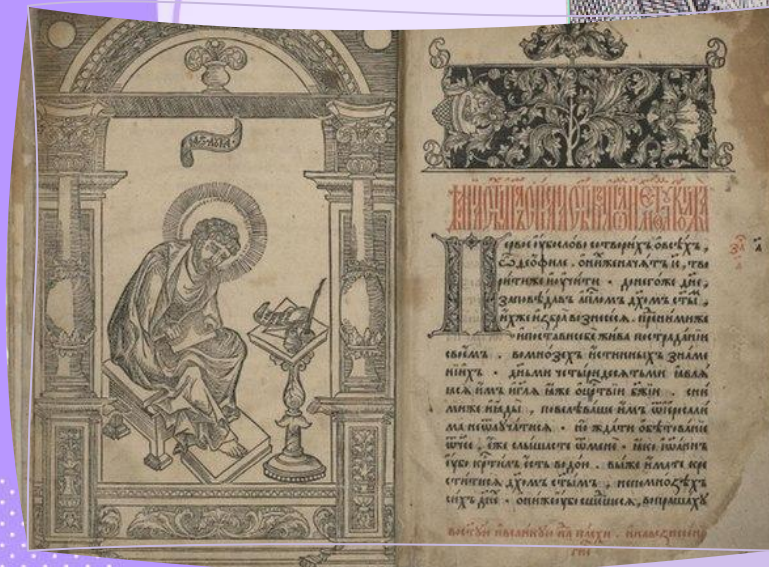 Первое ѹбо слово сотворихъ ѡ всѣхъ,
ѽ Ѳеофиле. ѡ нихже начатъ іс, тво
рити же и ѹчити · до негоже дне,
заповѣдавъ апломъ дхомъ сты,
ихже избра вознесеся. пре нимиже
и постави себе жива по страданіи
своемъ. во мнозехъ истинныхъ знаме
ніихъ · дньми четыридесятьми ꙗвлѧ
ѧсѧ имъ и глѧ ꙗже ѡ црствіи бжіи. с ни
миже и ꙗды, повелѣваше имъ ѿ іерсали
ма не ѿлѹчатисѧ · но ждати обѣтованіе
ѿчее, еже слышасте ѿ мене · ꙗко іѡаннъ
ѹбо крстилъ есть водою. вы же имате кре
ститисѧ дхомъ стымъ, не по мнозѣхъ
сихъ дне · ѡни же ѹбо сшедшесѧ, вопрашахѹ